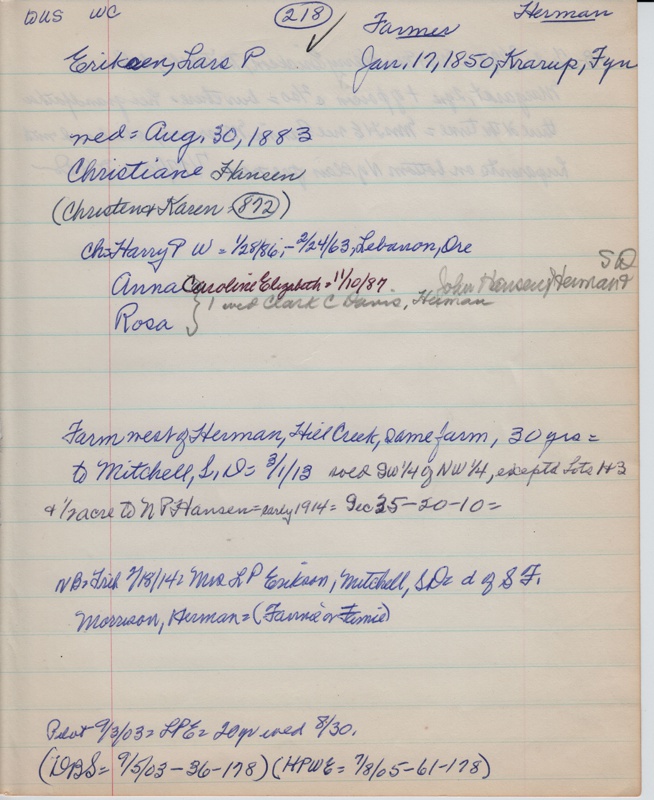 WUS WC 218 Herman
Farmer
Eriksen, Lars P. Jan. 17, 1850, Krarup, Fyn
wed = Aug. 30, 1883
Christiane Hansen
(Christen & Karen = 872)
ch = Harry P W = 1/28/86, - 2/24/63, Lebanon, Ore
Anna Caroline Elizabeth = 11/10/87 John Hansen, Herman & SD
Rosa } 1 wed Clark C Davis, Herman
Farm west of Herman, Hill Creek, same farm, 30 yrs =
to Mitchell, S.D = 3/1/13 sold SW 1/4 of NW 1/4, except Lots 1 & 3
& 1/2 acre to N P Hansen = early 1914 = Sec 35-20-10 =
NB = 2/18/14 = Mrs L P Erikson, Mitchell, S.D = d of S F.
Morrison, Herman = (Fannie or Femie)
Pilot 9/3/03 = LPE = 20 yr wed 8/30.
(DBS = 9/5/03-36-178) (HPWE = 7/8/65-61-178)